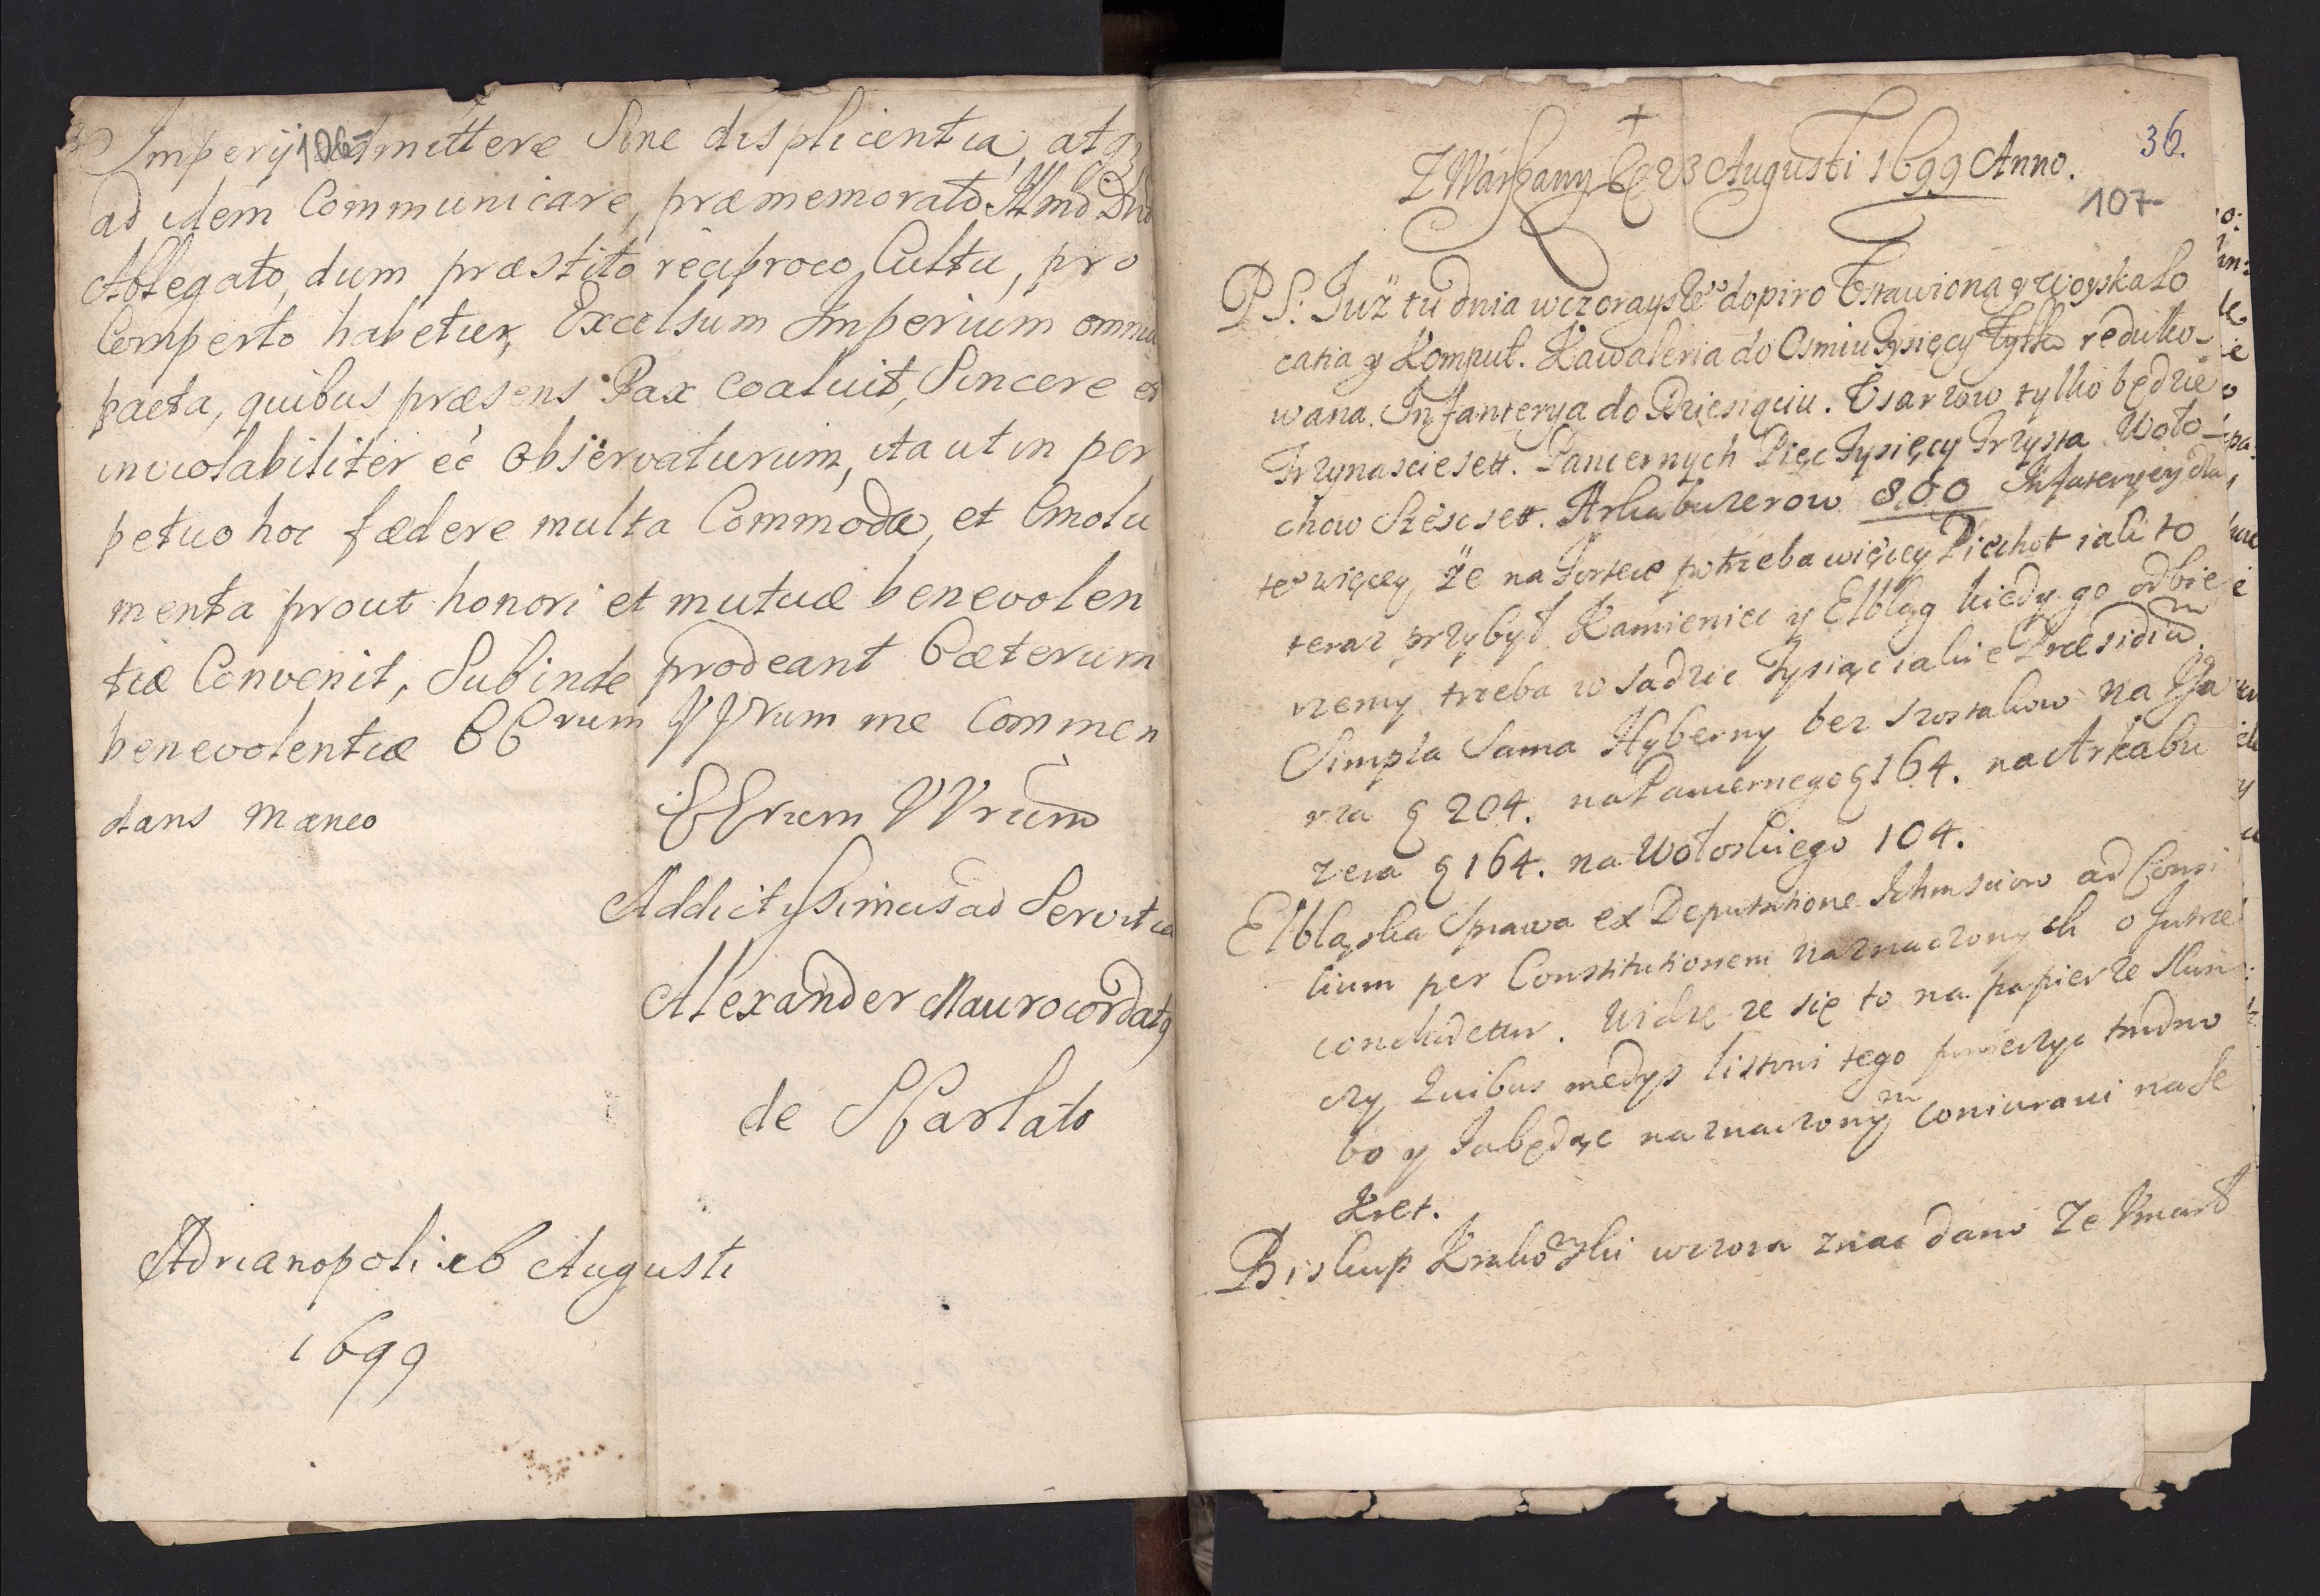 106
Imperij admittere Sine displicentia, atq3
ad idem Communicare, præmemorato Illmo Dno
Ablegato, dum præstito reciproco Cultu, pro
Comperto habetur, Excelsum Imperium omnia
pacta, quibus præsens Pax coaluit, Sincere et
inviolabiliter eé observaturum, ita ut in per
petuo hoc fædere multa Commoda, et Emolu
menta prout honori et mutuæ benevolen
tiæ Convenit, Subinde prodeant Cæterum
benevolentiæ EErum VVrum me Commen
dans maneo
EErum VVrum
Addictyssimus ad Servitia
Alexander Maurocordatq
de Skarlato
Adrianopoli Augusti
1699
36.
107
+
Z Warszawy 23 Augusti 1699 Anno.
PS. Już tu dnia wczorayszeo dopiro Ustawiona y woyska lo
catia y Komput. Kawaleria do Osmiu Tysięcy tylko reduko-
wana. Infanterya do Dziesiąciu. Usarzow tylko będzie
Trzynascie sett. Pancernych Pięc Tysięcy Trzysta Woło-
chow Szesc sett. Arkabuzerow 800 Infateryey dla
teo więcey że na Fortece potrzeba więcey Piechot iako to
teraz przybył Kamieniec y Elbląg kiedy go odbie
rzemy trzeba w sadzic Tysiąc iakie Præsidium.
Simpla Sama Hyberny bez Szostakow na Usa
rza 204. na Pancernego 164. na Arkabu
zera 164. na Wołoskiego 104.
Elbląska Sprawa ex Deputatione Ichmsciow ad Consi
lium per Constitutionem naznaczonych o Jutrze
concludetur. Widzę ze się to na papierze skon
czy Quibus medys listowi tego trudno
bo y Ja będąc naznaczonym coniuravi na Se
kret.
Biskup Krakowski wczora znac dano Ze Vmarł